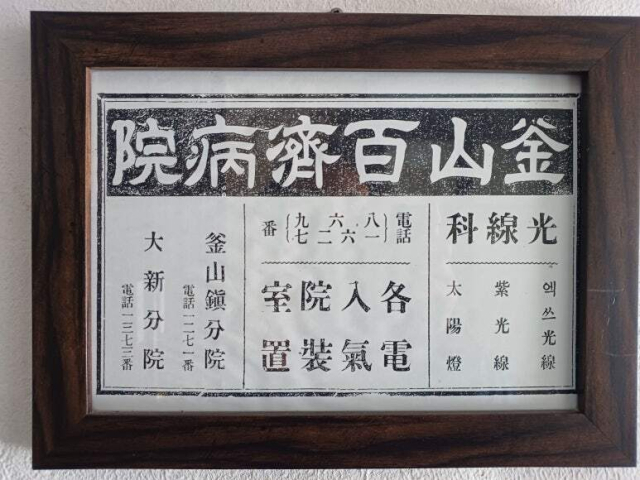 釜山百濟病院
光線科
엑쓰光線
紫光線
太陽燈
電話 八一 六 六二 九七 番
各入院室
電氣裝置
釜山鎭分院
電話一二七一番
大新分院
電話一三七三番